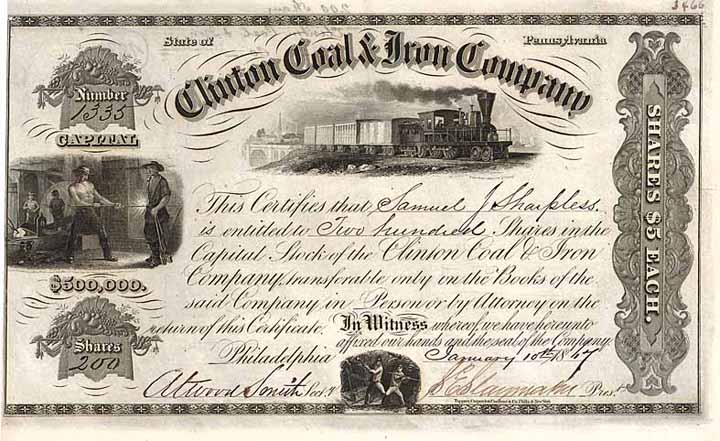 200 Shares
3466
State of Pennsylvania
Clinton Coal & Iron Company
Number
1335
CAPITAL
$500,000.
Shares
200
This Certifies that Samuel J Sharpless.
is entitled to Two hundred Shares in the
Capital Stock of the Clinton Coal & Iron
Company, transferable only on the Books of the
said Company in Person or by Attorney on the
return of this Certificate. In Witness whereof, we have hereunto
affixed our hands and the seal of the Company.
Philadelphia January 10th 1867
Atwood Smith Secty. Prest.
SHARES $5 EACH.